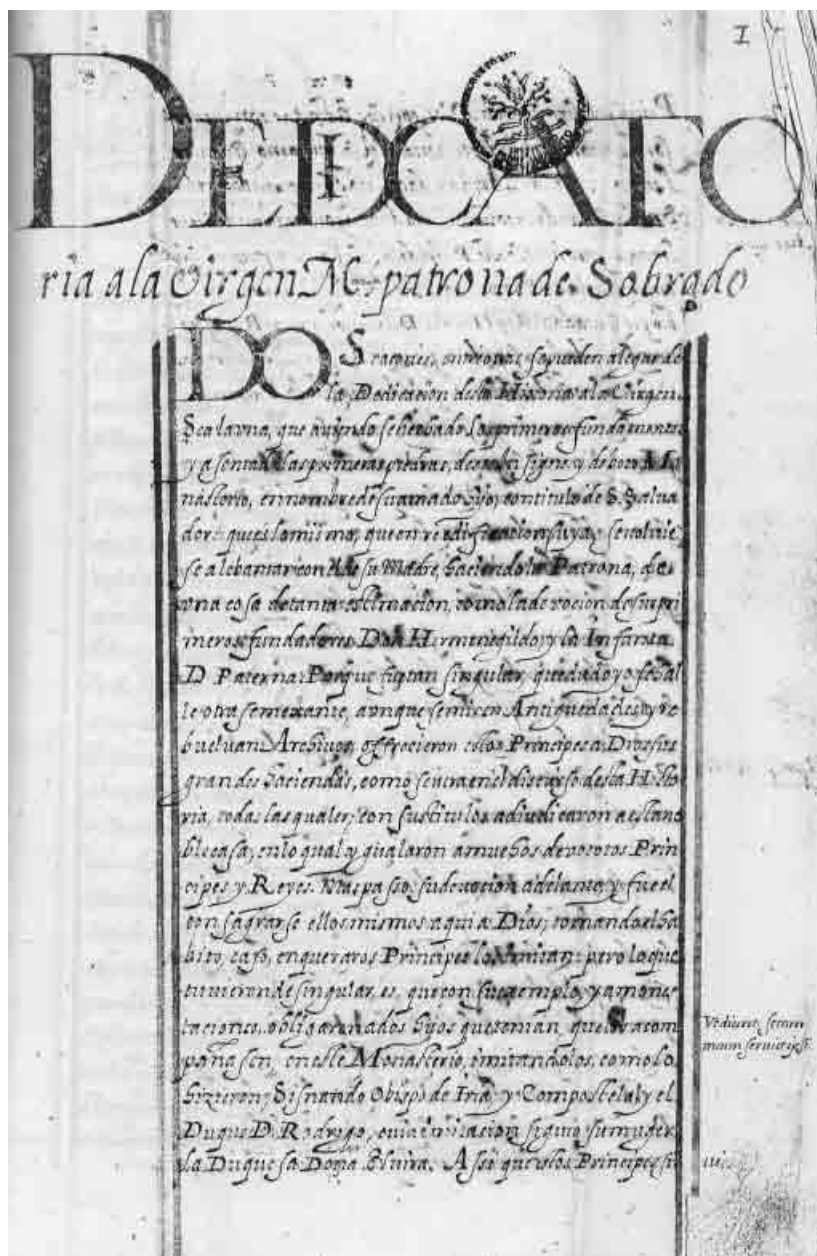 1
DEDICATO
ria a la Virgen M. patrona de Sobrado
DOS raçones, entre otras se pueden alegar de
la Dedicacion desta Historia a la Virgen.
Sea la una, que aviendo se hechado los primeros fundamentos
y asentado las primeras piedras, deste insigne y deboto Mo
nasterio, en nombre de su amado hijo, con titulo de S. Salva
dor: que es lo mismo, que en reedificacion suya, se volvie
se a lebantar con el de su Madre, haciendola Patrona, de
una cosa de tanta estimacion, como la devocion de sus pri
meros fundadores Don Hermenegildo, y la Infanta
D. Paterna: Porque fue tan singular, que dudo yo se hal
le otra semexante, aunque se miren Antiguedades, y re
buelvan Archivos, offrecieron estos Principes a Dios sus
grandes haciendas, como se vera en el discurso desta Histo
ria, todas las quales, con sus titulos adiudicaron a esta no
ble casa, en lo qual ygualaron a muchos devotos Prin
cipes y Reyes. Mas passo su devocion adelante, y fue el
consagrarse ellos mismos aqui a Dios, tomando el ha
bito, caso, en que raros Principes los imitan: pero lo que
tuvieron de singular, es, que con su exemplo, y amones
taciones, obligaron a dos hijos que tenian, que los acom
pañasen, en este Monasterio, imitandolos, como lo
hizieron, Sisnando Obispo de Iria, y Compostela, y el
Duque D. Rodrigo, cuia imitacion siguio su muger
la Duquesa Doña Elvira. Assi que estos Principes si